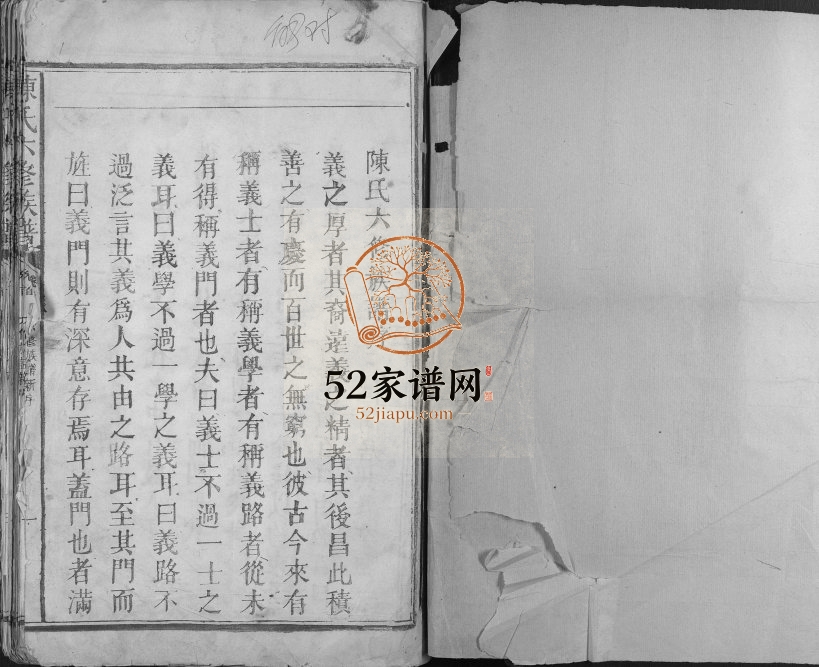 陳氏六修族譜
義之厚者其裔遠義之精者其後昌此積
善之有慶而百世之無窮也彼古今來有
稱義士者有稱義學者有稱義路者從未
有得稱義門者也夫曰義士不過一士之
義耳曰義學不過一學之義耳曰義路不
過泛言其義爲人共由之路耳至其門而
旌曰義門則有深意存焉耳蓋門也者滿
陳氏六修族譜
52家谱网
52jiapu.com